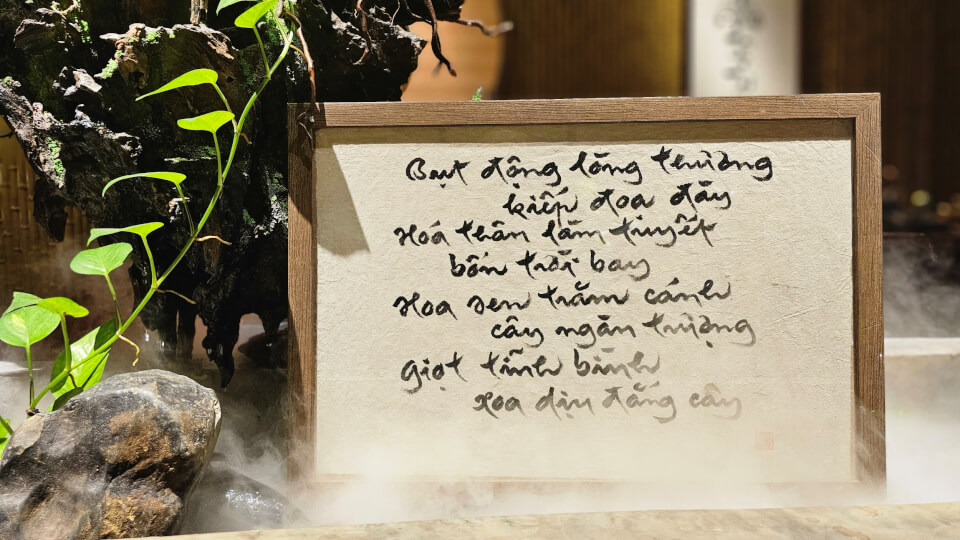 Bụt động lòng thương
kiếp đoạ đầy
Hoá thân làm tuyết
bốn trời bay
Hoa sen trăm cánh
cây ngàn trượng
Giọt tĩnh bình
xoa dịu đắng cây